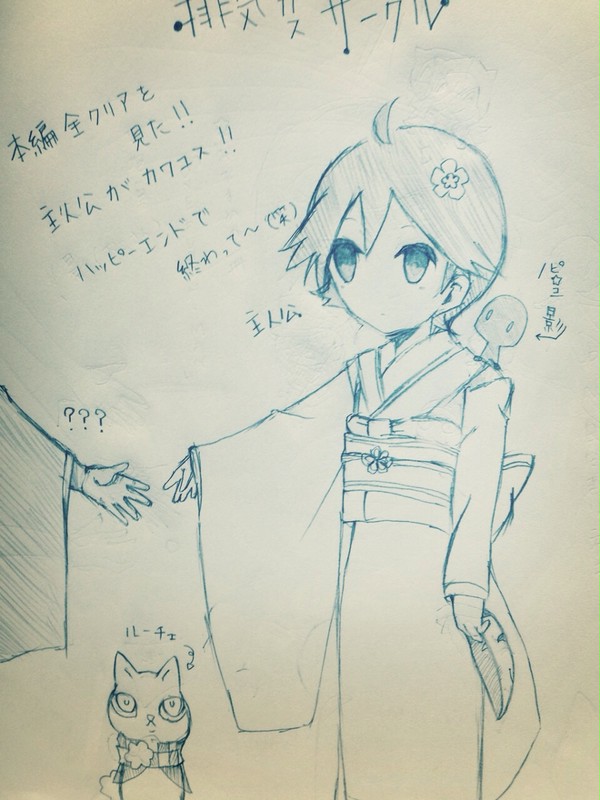 排気ガスサークル
本編全クリアを
見た!!
主人公がカワユス!!
ハッピーエンドで
終わって～(笑)
主人公
影
???
ルーチェ